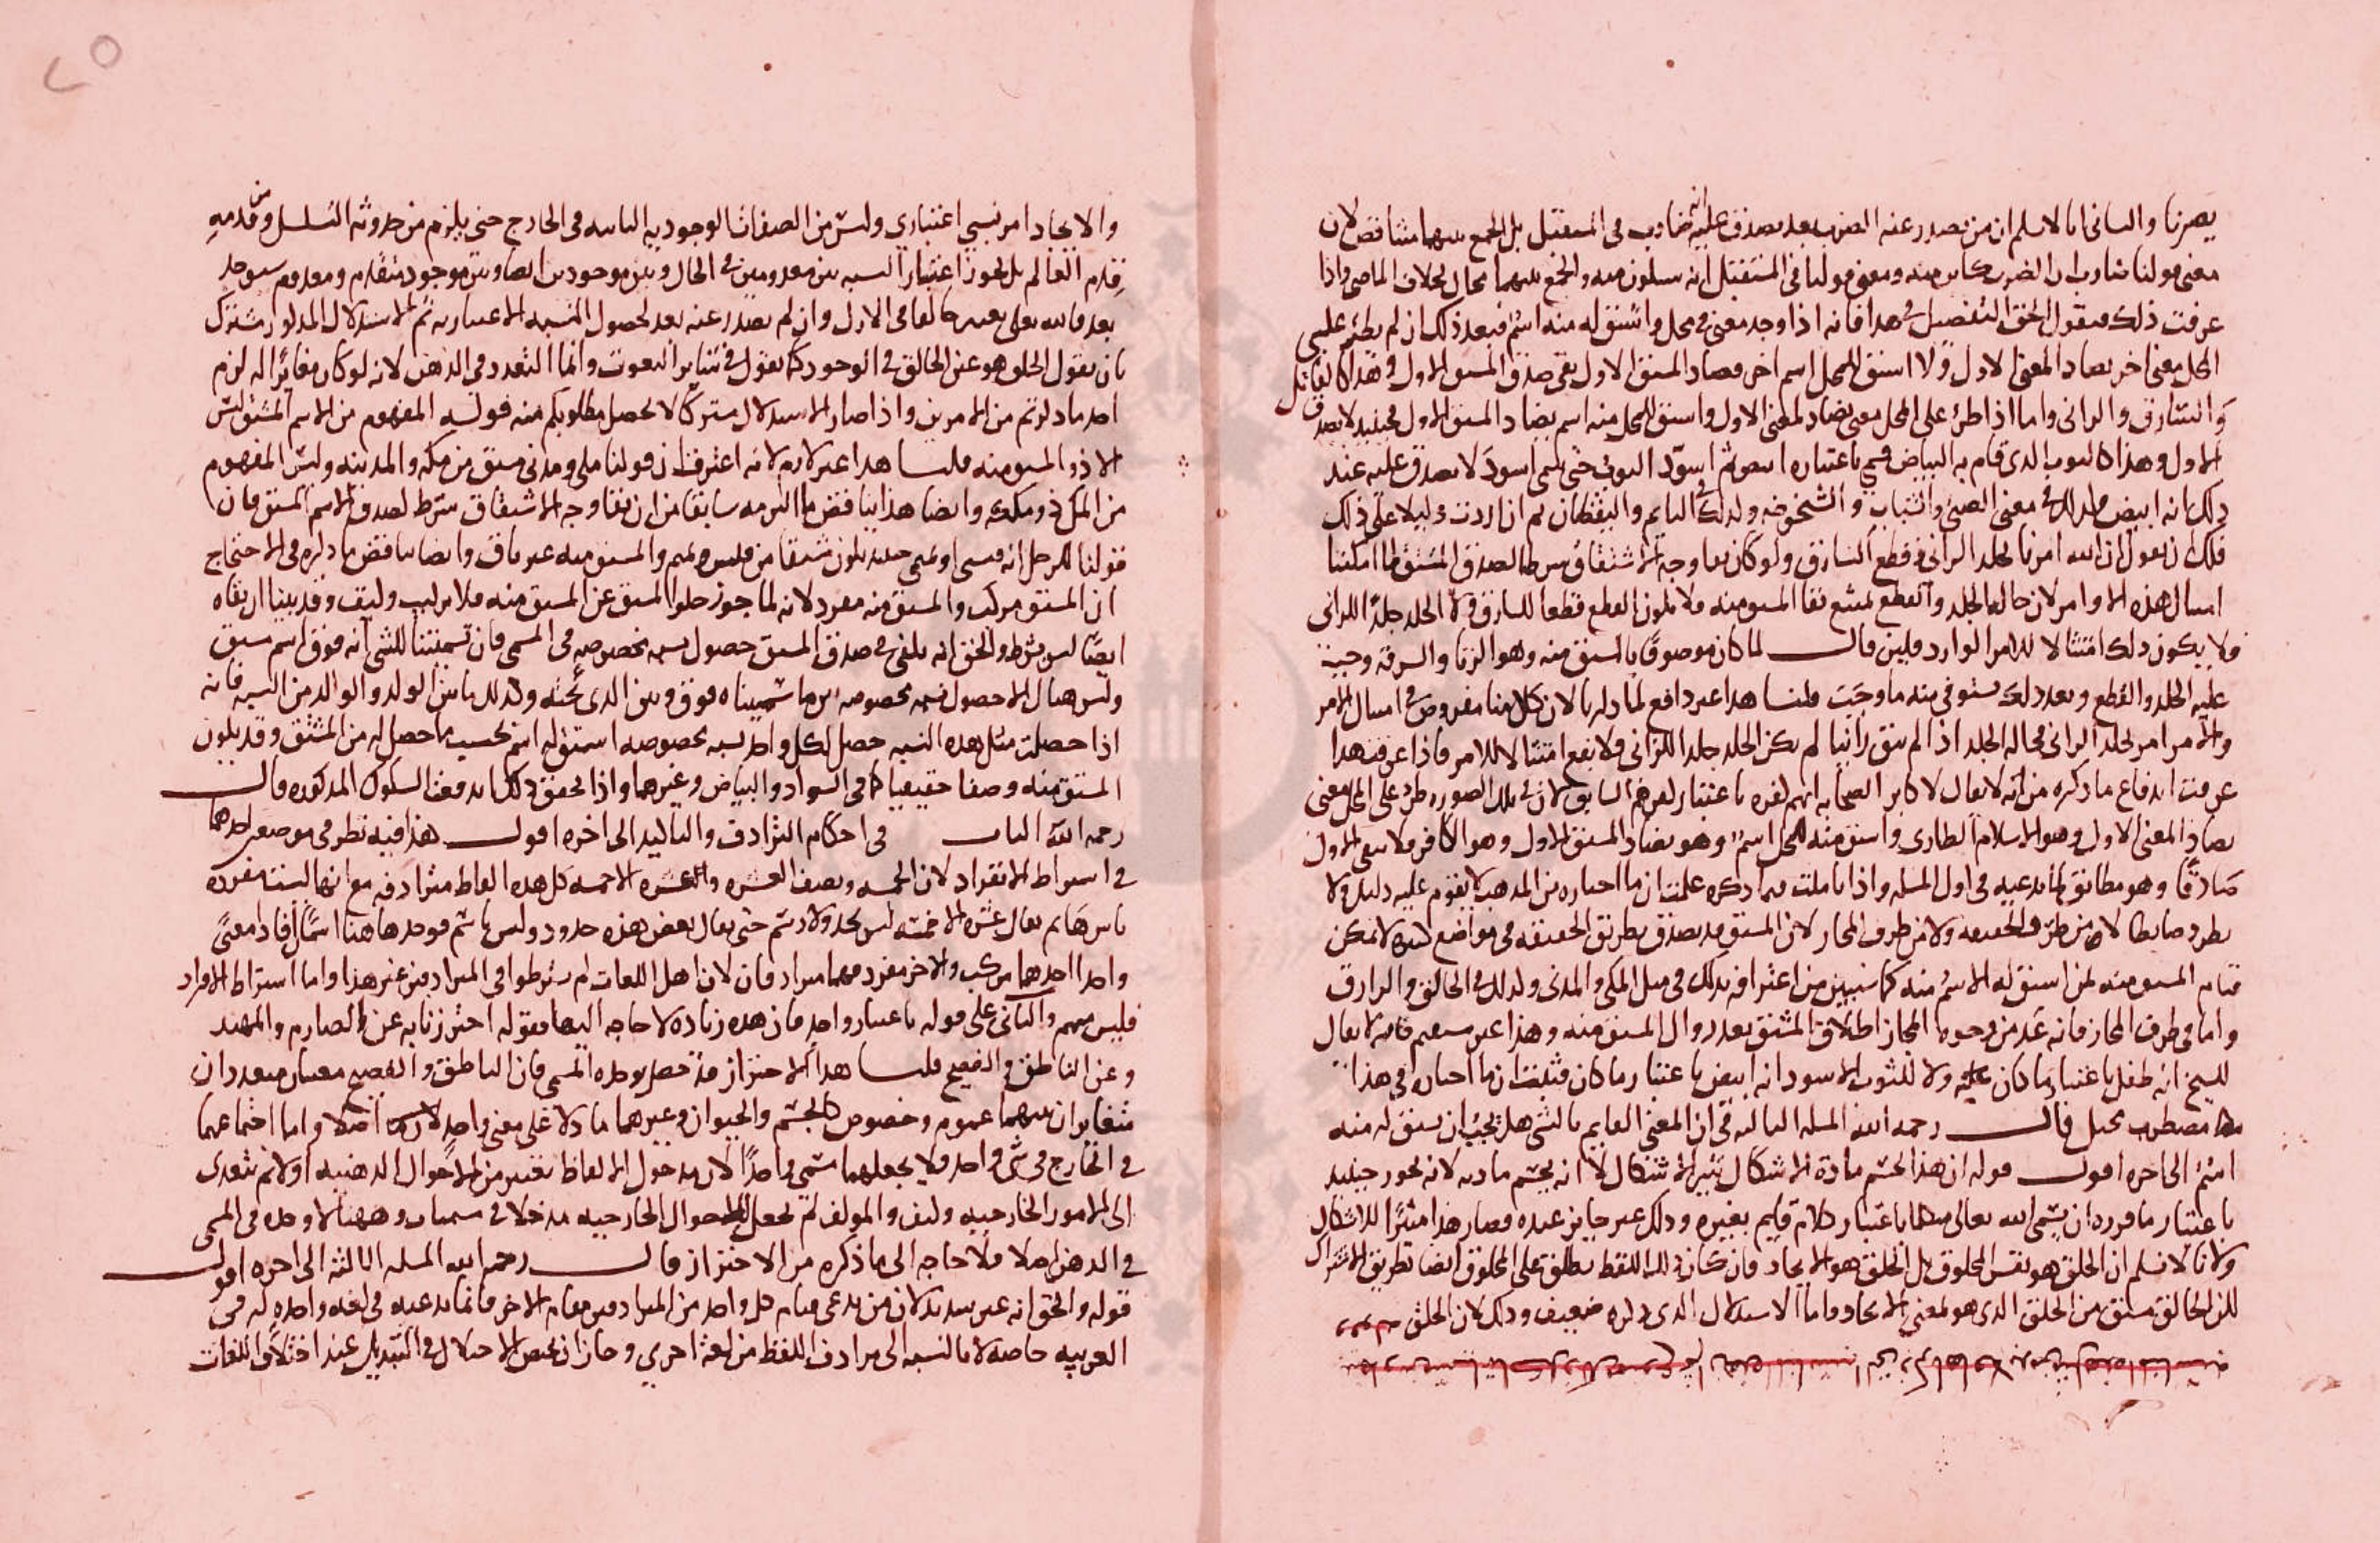 يضرنا والثاني انا لا نسلم ان من يصدر عنه الضرب بعد يصدق عليه انه ضارب في المستقبل بل الجمع بينهما متناقض لان
معنى قولنا ضارب ان الضرب كاين منه ومعنى قولنا في المستقبل انه سيكون منه والجمع بينهما محال بخلاف الماضي واذا
عرفت ذلك فنقول الحق التفصيل في هذا فانه اذا وجد معنى في محل واشتق له منه اسم فبعد ذلك ان لم يطرء على
المحل معنى اخر يضاد المعنى الاول ولا اشتق للمحل اسم اخر يضاد المشتق الاول بقي صدق المشتق الاول وهذا كالقاتل
والسارق والزاني واما اذا طرئ على المحل معنى يضاد المعنى الاول واشتق للمحل منه اسم يضاد المشتق الاول فحينئذ لا يصدق
الاول وهذا كالثوب الذي قام به البياض فسمي باعتباره ابيض ثم اسود الثوب حتى سمي اسود لا يصدق عليه عند
ذلك انه ابيض وكذلك في معنى الصبي والشباب والشيخوخه وكذلك النايم واليقظان ثم ان اردت دليلا على ذلك
فلك ان تقول ان الله امرنا بجلد الزاني وقطع السارق ولو كان بقا وجه الاشتقاق شرطا لصدق المشتق لما امكننا
امتثال هذه الاوامر لان حالة الجلد والقطع يمتنع بقا المشتق منه فلا يكون القطع قطعا للسارق ولا الجلد جلدا للزاني
فلا يكون ذلك امتثالا للامر الوارد فلين قال لما كان موصوفا بالمشتق منه وهو الزنا والسرقه وجب
عليه الجلد والقطع وبعد ذلك يستوفي منه ما وجب قلنا هذا غير دافع لما ذكرنا لان كلامنا مفروض في امتثال الامر
والامر امر بجلد الزاني فحالة الجلد اذا لم يبق زانيا لم يكن الجلد جلدا للزاني فلا يقع امتثالا للامر فاذا عرفت هذا
عرفت اندفاع ما ذكره من انه لا يقال لاكابر الصحابه انهم كفره باعتبار كفرهم السابق لان في تلك الصوره طرء على المحل معنى
يضاد المعنى الاول وهو الاسلام الطاري واشتق منه للمحل اسم وهو يضاد المشتق الاول وهو الكافر فلا يبقى الاول
صادقا وهو مطابق لما ندعيه في اول المسله واذا تاملت فيما ذكره علمت ان ما اختاره من المذهب لا يقوم عليه دليل ولا
يطرد ضابطا لا من طرف الحقيقه ولا من طرف المجاز لان المشتق قد يصدق بطريق الحقيقه في مواضع كثيره لا يمكن
قيام المشتق منه لمن اشتق له الاسم منه كما سنبين من اعترافه بذلك في مثل المكي والمدني وكذلك في الخالق والرازق
واما في طرف المجاز فانه عد من وجوه المجاز اطلاق المشتق بعد زوال المشتق منه وهذا غير مستقيم فانه لا يقال
للشيخ انه طفل باعتبار ما كان عليه ولا للثوب الاسود انه ابيض باعتبار ما كان فثبت ان ما اختاره في هذا
مضطرب مختل قال رحمه الله المسله الثالثه في ان المعنى القايم بالشي هل يجب ان يشتق له منه
اسم الى اخره اقول قوله ان هذا لحسم مادة الاشكال يثير الاشكال لا انه يحسم مادته لانه يجوز حينئذ
باعتبار ما قرره ان يسمى الله تعالى متكلما باعتبار كلام قايم بغيره وذلك غير جايز عنده فصار هذا مثيرا للاشكال
ولانا لا نسلم ان الخلق هو نفس المخلوق بل الخلق هو الايجاد فان كان ذلك اللفظ يطلق على المخلوق ايضا بطريق الاشتراك
لكن الخالق مشتق من الخلق الذي هو لمعنى الايجاد واما الاستدلال الذي ذكره ضعيف وذلك لان الخلق
والايجاد امر نسبي اعتباري وليس من الصفات الوجوديه الثابته في الخارج حتى يلزم من حدوثه التسلسل ومن قدمه
قدم العالم بل يجوز اعتبار النسبه بين معدومين في الحال وبين موجودين ايضا وبين موجود متقدم ومعدوم سيوجد
بعد فالله تعالى يعتبر خالقا في الازل وان لم يصدر عنه بعد لحصول النسبه الاعتباريه ثم الاستدلال المذكور مشترك
بان نقول الخلق هو عين الخالق في الوجود كما نقول في ساير النعوت وانما التعدد في الذهن لانه لو كان مغايرا له لزم
احد ما ذكرتم من الامرين واذا صار الاستدلال مشتركا لا يحصل مطلوبكم منه قوله المفهوم من الاسم المشتق ليس
الا ذو المشتق منه قلنا هذا غير لازم لانه اعترف ان قولنا مكي ومدني مشتق من مكه والمدينه وليس المفهوم
من المكي ذو مكه وايضا هذا يناقض ما التزمه سابقا من ان بقا وجه الاشتقاق شرط لصدق الاسم المشتق فان
قولنا للرجل انه قيسي او تميمي حينئذ يكون مشتقا من قيس وتميم والمشتق منه غير باق وايضا يناقض ما ذكره في الاحتجاج
ان المشتق مركب والمشتق منه مفرد لانه لما جوز خلو المشتق عن المشتق منه فلا تركيب وكيف وقد بينا ان بقاه
ايضا ليس بشرط والحق انه يكفي في صدق المشتق حصول نسبه مخصوصه في المسمى فان تسميتنا للشي انه فوق اسم مشتق
وليس هناك الا حصول نسبه مخصوصه بين ما سميناه فوق وبين الذي تحته وكذلك ما بين الولد والوالد من النسبه فانه
اذا حصلت مثل هذه النسبه حصل لكل واحد نسبه مخصوصه اشتق له اسم بحسب ما حصل له من المشتق وقد يكون
المشتق منه وصفا حقيقيا كما في السواد والبياض وغيرهما واذا تحقق ذلك اندفعت الشكوك المذكوره قال
رحمه الله الباب في احكام الترادف والتاكيد الى اخره اقول هذا فيه نظر في موضعين احدهما
في اشتراط الانفراد لان الخمسه ونصف العشره والعشره الا خمسه كل هذه الفاظ مترادفه مع انها ليست مفرده
باسرها ثم يقال عشره الا خمسه ليس بحد ولا رسم حتى يقال بعض هذه حدود وليس باسم فوجدها هنا اسمان افادا معنى
واحدا احدهما مركب والاخر مفرد فهما مترادفان لان اهل اللغات لم يشرطوا في المترادفين غير هذا واما اشتراط الافراد
فليس منهم والثاني على قوله باعتبار واحد فان هذه زياده لا حاجه اليها فقوله احترزنا به عن الصارم والمهند
وعن الناطق والفصيح قلنا هذا الاحتراز قد حصل بوحده المسمى فان الناطق والفصيح معنيان متعددان
متغايران بينهما عموم وخصوص كالجسم والحيوان وغيرهما ما دلا على معنى واحد اصلا واما اجتماعهما
في الخارج في شي واحد فلا يجعلهما مسمى واحدا لان مدخول الالفاظ تعتبر من الاحوال الذهنيه اولا ثم تتعدى
الى الامور الخارجيه وكيف والمولف لم يجعل للاحوال الخارجيه مدخلا في مسميات وههنا لا وحده في المسمى
في الذهن اصلا فلا حاجه الى ما ذكره من الاحتراز قال رحمه الله المسله الثالثه الى اخره اقول
قوله والحق انه غير سديد لان من يدعي قيام كل واحد من المترادفين مقام الاخر فانما يدعيه في لغه واحده كه في
العربيه خاصه لا بالنسبه الى مرادف اللفظ من لغة اخرى وجاز ان يختص الاختلال في التبديل عند اختلاف اللغات